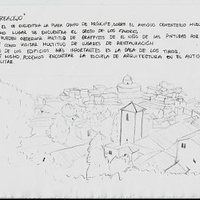 REALEJO
EL SE ENCUENTRA LA PLAZA CAMPO DE PRINCIPE, SOBRE EL ANTIGUO CEMENTERIO
COMO LUGAR SE ENCUENTRA EL CRISTO DE LOS FAVORES
PUEDEN OBSERVAR MULTITUD DE GRAFFITIS DE EL NIÑO DE LAS PINTURAS POR
COMO VISITAR MULTITUD DE LUGARES DE RESTAURACIÓN
DE LOS EDIFICIOS MÁS IMPORTANTES ES LA CASA DE LOS TIROS.
MISMO, PODEMOS ENCONTRAR LA ESCUELA DE ARQUITECTURA EN EL ANTIGUO
MILITAR